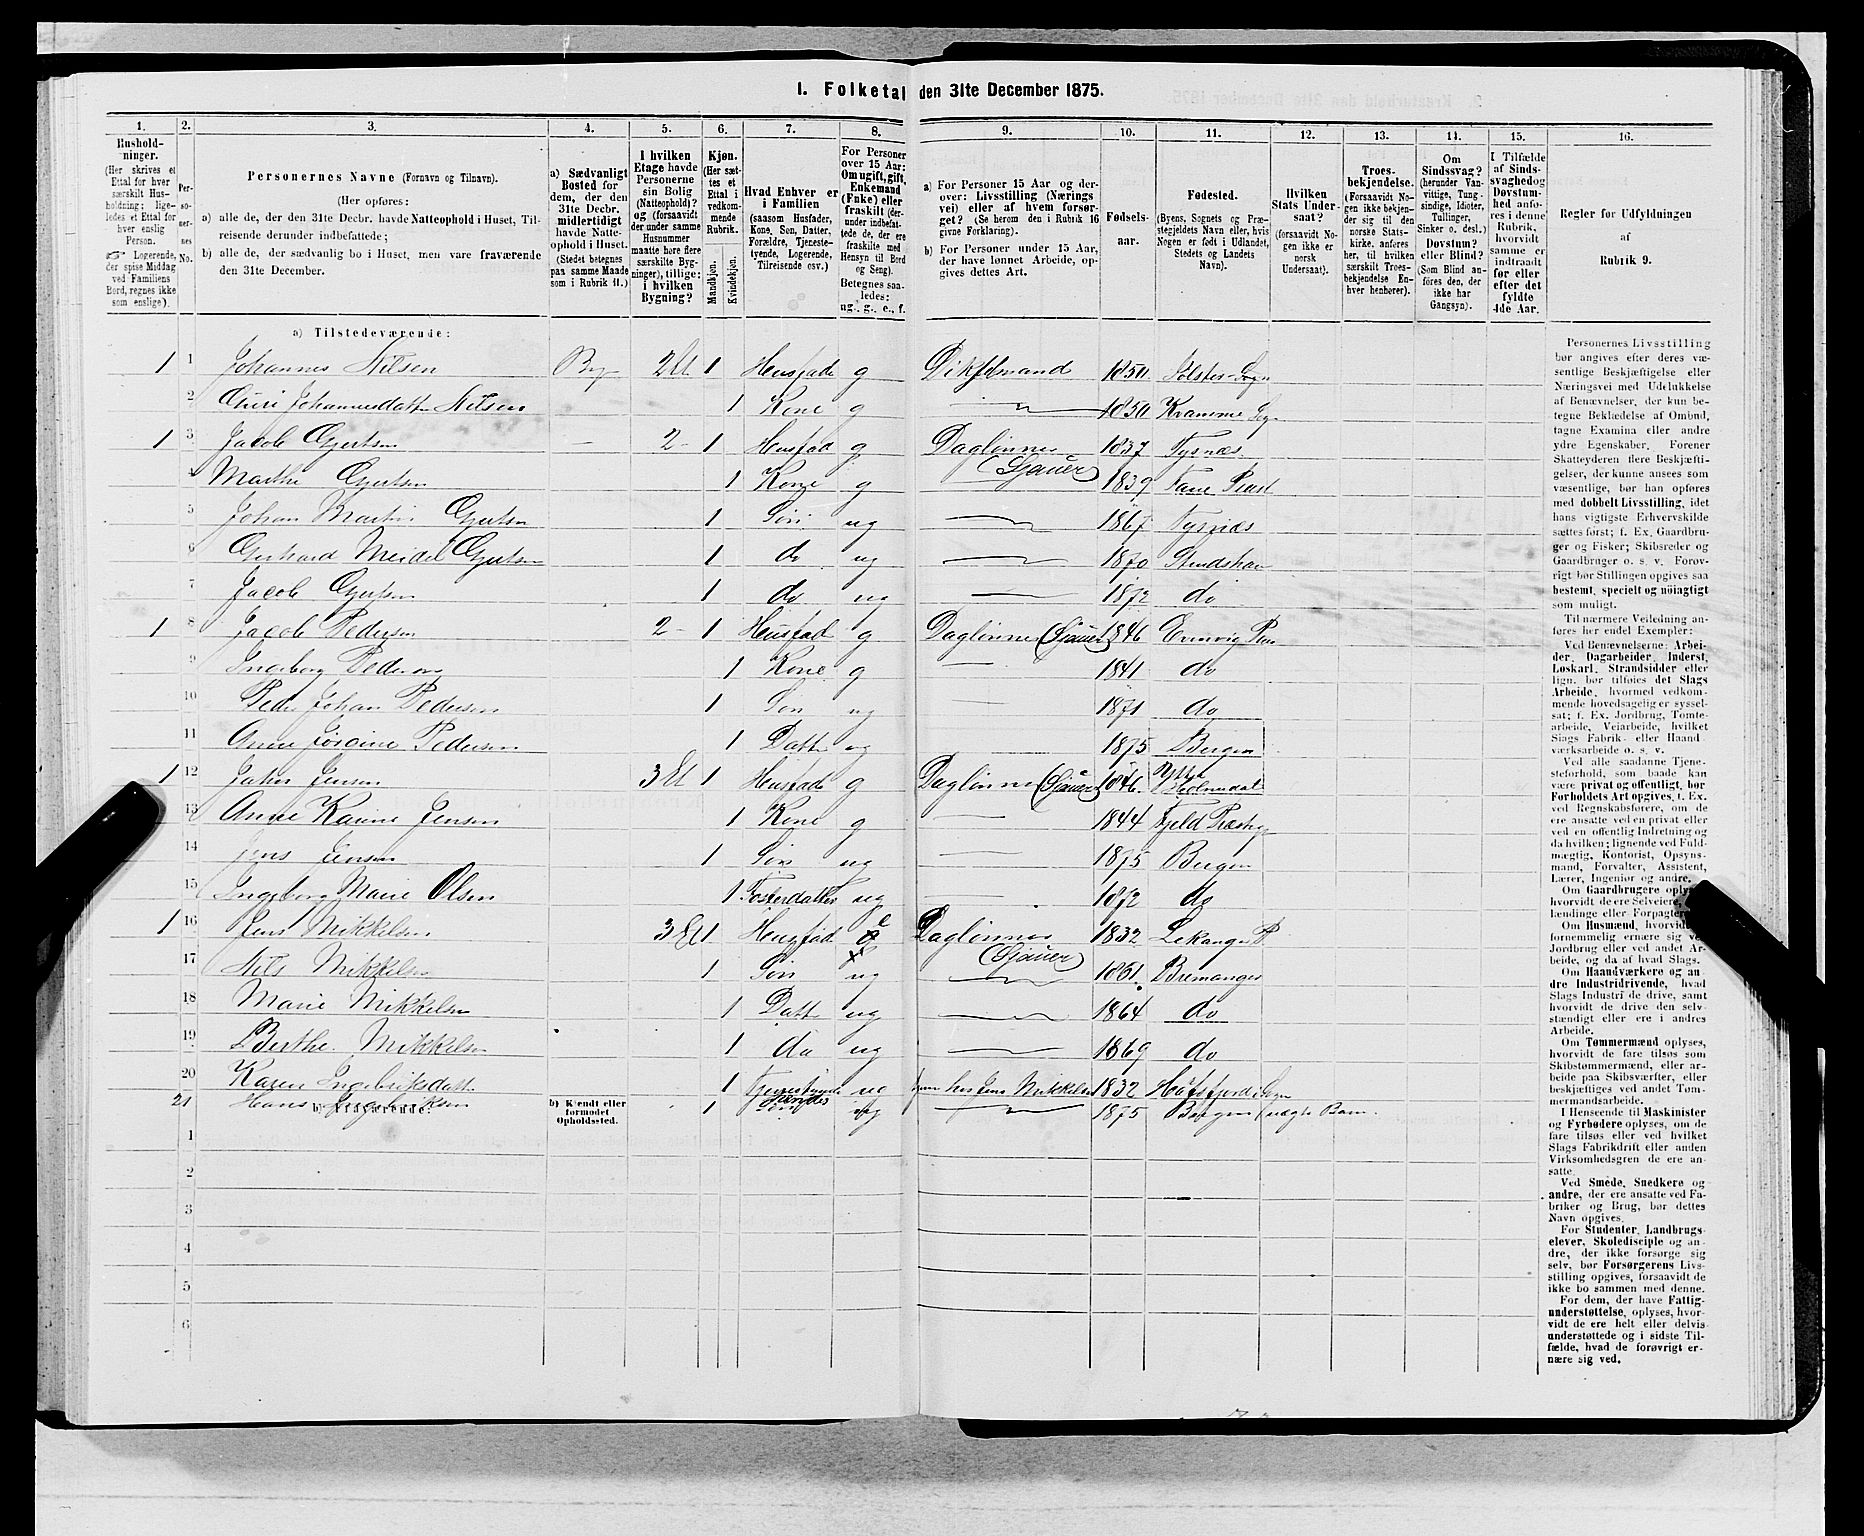 1. Folketal den 31te December 1875.
1. 2. 3. 4. 5. 6. 7. 8. 9. 10. 11. 12. 13. 14. 15. 16.
Hushold-
ninger.
(Her skrives et
Ettal for hver
særskilt Hus-
holdning; lige-
ledes et Ettal for
hver enslig
Person.
☞ Logerende,
der spise Middag
ved Familiens
Bord, regnes ikke
som enslige).
Per-
so-
ner-
nes
No.
Personernes Navne (Fornavn og Tilnavn).
(Her opføres:
a) alle de, der den 31te Decbr. havde Natteophold i Huset, Til-
reisende derunder indbefattede;
b) alle de, der sædvanlig bo i Huset, men vare fraværende
den 31te December.
a) Sædvanligt
Bosted for
dem, der den
31te Decbr.
midlertidigt
havde Natte-
ophold i Huset.
(Stedet betegnes
paa samme Maade
som i Rubrik 11.)
I hvilken
Etage havde
Personerne
sin Bolig
(Natteophold)?
og (forsaavidt
der under samme
Husnummer
maatte høre flere
særskilte Byg-
ninger), tillige:
i hvilken
Bygning?
Kjøn.
(Her sæt-
tes et
Ettal i
vedkom-
mende
Rubrik.
Mandkjøn.
Kvindekjøn.
Hvad Enhver er
i Familien
(saasom Husfader,
Kone, Søn, Datter,
Forældre, Tjeneste-
tyende, Logerende,
Tilreisende osv.)
For Personer
over 15 Aar:
Om ugift, gift,
Enkemand
(Enke) eller
fraskilt (der-
under indbefat-
tede de, der ere
fraskilte med
Hensyn til Bord
og Seng).
Betegnes saa-
ledes:
ug., g., e., f.
a) For Personer 15 Aar og der-
over: Livsstilling (Nærings
vei) eller af hvem forsør-
get? (Se herom den i Rubrik 16
givne Forklaring).
b) For Personer under 15 Aar,
der have lønnet Arbeide, op-
gives dettes Art.
Fødsels-
aar.
Fødested.
(Byens, Sognets og Præ-
stegjeldets Navn eller, hvis
Nogen er født i Udlandet,
Stedets og Landets
Navn).
Hvilken
Stats Under-
saat?
(forsaavidt No-
gen ikke er
norsk
Undersaat).
Troes-
bekjendelse.
(Forsaavidt No-
gen ikke bekjen-
der sig til den
norske Stats-
kirke, anføres
her, til hvilken
særskilt Troes-
bekjendelse En-
hver henhører).
Om
Sindssvag?
(herunder Van-
vittige, Tung-
sindige, Idioter,
Tullinger,
Sinker o. desl.)
Døvstum?
eller Blind?
(Som Blind an-
føres den, der
ikke har
Gangsyn).
I Tilfælde
af Sinds-
svaghed og
Døvstum-
hed anfø-
res i denne
Rubrik,
hvorvidt
samme er
indtraadt
før eller
efter det
fyldte
4de Aar.
Regler for Udfyldningen
af
Rubrik 9.
a) Tilstedeværende:
1 1 Johannes Nilsen 2 Et 1 Husfade g 1850 Sogn
2 Guri Johannesdatte Nilsen 1 Kone g 1850 Sogn
1 3 Jacob Gjertsen — 2 - 1 Husfad g Daglønner (Sjauer) 1837 Tysnæs
4 Marthe Gjertsen 1 Kone g 1839 Fane Præst
5 Johan Martin Gjertsen 1 Søn ug 1867 Tysnæs
6 Gerhard Meidel Gjertsen 1 do ug 1870
7 Jacob Gjertsen 1 do ug 1872 do
1 8 Jacob Pedersen 2 - 1 Husfad g Daglønner (Sjauer) 1846
9 Ingeborg Pedersen 1 Kone g 1841 do
10 Peder Johan Pedersen 1 Søn ug 1871 do
11 Anne Pedersen 1 Datt ug 1875 Bergen
1 12 Johan Jensen 3 Et 1 Husfade g Daglønner (Sjauer) 1846. Ytre Holmedal
13 Anne Karine Jensen 1 Kone g 1844 Fjeld Præstg
14 Jens Jensen 1 Søn ug 1875 Bergen
15 Ingeborg Marie Olsen 1 Fosterdatter ug 1872 do
1 16 Jens Mikkelsen 3 Et 1 Husfad e Daglønner (Sjauer) 1832 Lekanger P
17 Nils Mikkelsen 1 Søn ug 1861 Bremanger
18 Marie Mikkelsen 1 Datt ug 1864 do
19 Berthe Mikkelsen 1 do ug 1869 do
20 Karen Ingebriktsdatt 1 ug hos Jens Mikkelsen 1832 Sogn
21 Hans Ingebriktsen 1 Søn ug 1875 Bergen (uægte Barn.
b) Fraværende:
b) Kjendt eller
formodet
Opholdssted.
1
2
3
4
5
6
Personernes Livsstilling
bør angives efter deres væ-
sentlige Beskjæftigelse eller
Næringsvei med Udelukkelse
af Benævnelser, der kun be-
tegne Beklædelse af Ombud,
tagne Examina eller andre
ydre Egenskaber. Forener
Skatteyderen flere Beskjæfti-
gelser, der kunne ansees som
væsentlige, bør han opføres
med dobbelt Livsstilling, idet
hans vigtigste Erhvervskilde
sættes først; f. Ex. Gaardbru-
ger og Fisker; Skibsreder og
Gaardbruger o. s. v. Forøv-
rigt bør Stillingen opgives saa
bestemt, specielt og nöiagtigt
som muligt.
Til nærmere Veiledning an-
føres her endel Exempler:
Ved Benævnelserne: Arbei-
der, Dagarbeider, Inderst,
Løskarl, Strandsidder eller
lign. bør tilføies det Slags
Arbeide, hvormed vedkom-
mende hovedsagelig er syssel-
sat; f. Ex. Jordbrug, Tomte-
arbeide, Veiarbeide, hvilket
Slags Fabrik- eller Haand-
værksarbeide o. s. v.
Ved alle saadanne Tjene-
steforhold, som baade kan
være privat og offentligt, bør
Forholdets Art opgives, f. Ex.
ved Regnskabsførere, om de
ere ansatte ved en privat eller
ved en offentlig Indretning og
da hvilken; lignende ved Fuld-
mægtig, Kontorist, Opsyns-
mand, Forvalter, Assistent,
Lærer, Ingeniør og andre.
Om Gaardbrugere oplys-
hvorvidt de ere Selveiere,
lændinge eller Forpagtere
Om Husmænd, hvorvidt
fornemmelig ernære sig ved
Jordbrug eller ved andet Ar-
beide, og da af hvad Slags.
Om Haandværkere og an-
dre Industridrivende, hvad
Slags Industri de drive, samt
hvorvidt de drive den selv-
stændigt eller ere i andres
Arbeide.
Om Tømmermænd oplyses,
hvorvidt de fare tilsøs som
Skibstømmermænd, eller ar-
beide paa Skibsværfter, eller
beskjæftiges ved andet Tøm-
mermandsarbeide.
I Henseende til Maskinister
og Fyrbødere oplyses, om de
fare tilsøs eller ved hvilket
Slags Fabrikdrift eller anden
Virksomhedsgren de ere an-
satte.
Ved Smede, Snedkere og
andre, der ere ansatte ved Fa-
briker og Brug, bør dettes
Navn opgives.
For Studenter, Landbrugs-
elever, Skoledisciple og an-
dre, der ikke forsørge sig
selv, bør Forsørgerens Livs-
stilling opgives, forsaavidt de
ikke bo sammen med denne.
For dem, der have Fattig-
understøttelse, oplyses, hvor-
vidt de ere helt eller delvis
understøttede og i sidste Til-
fælde, hvad de forøvrigt er-
nære sig ved.